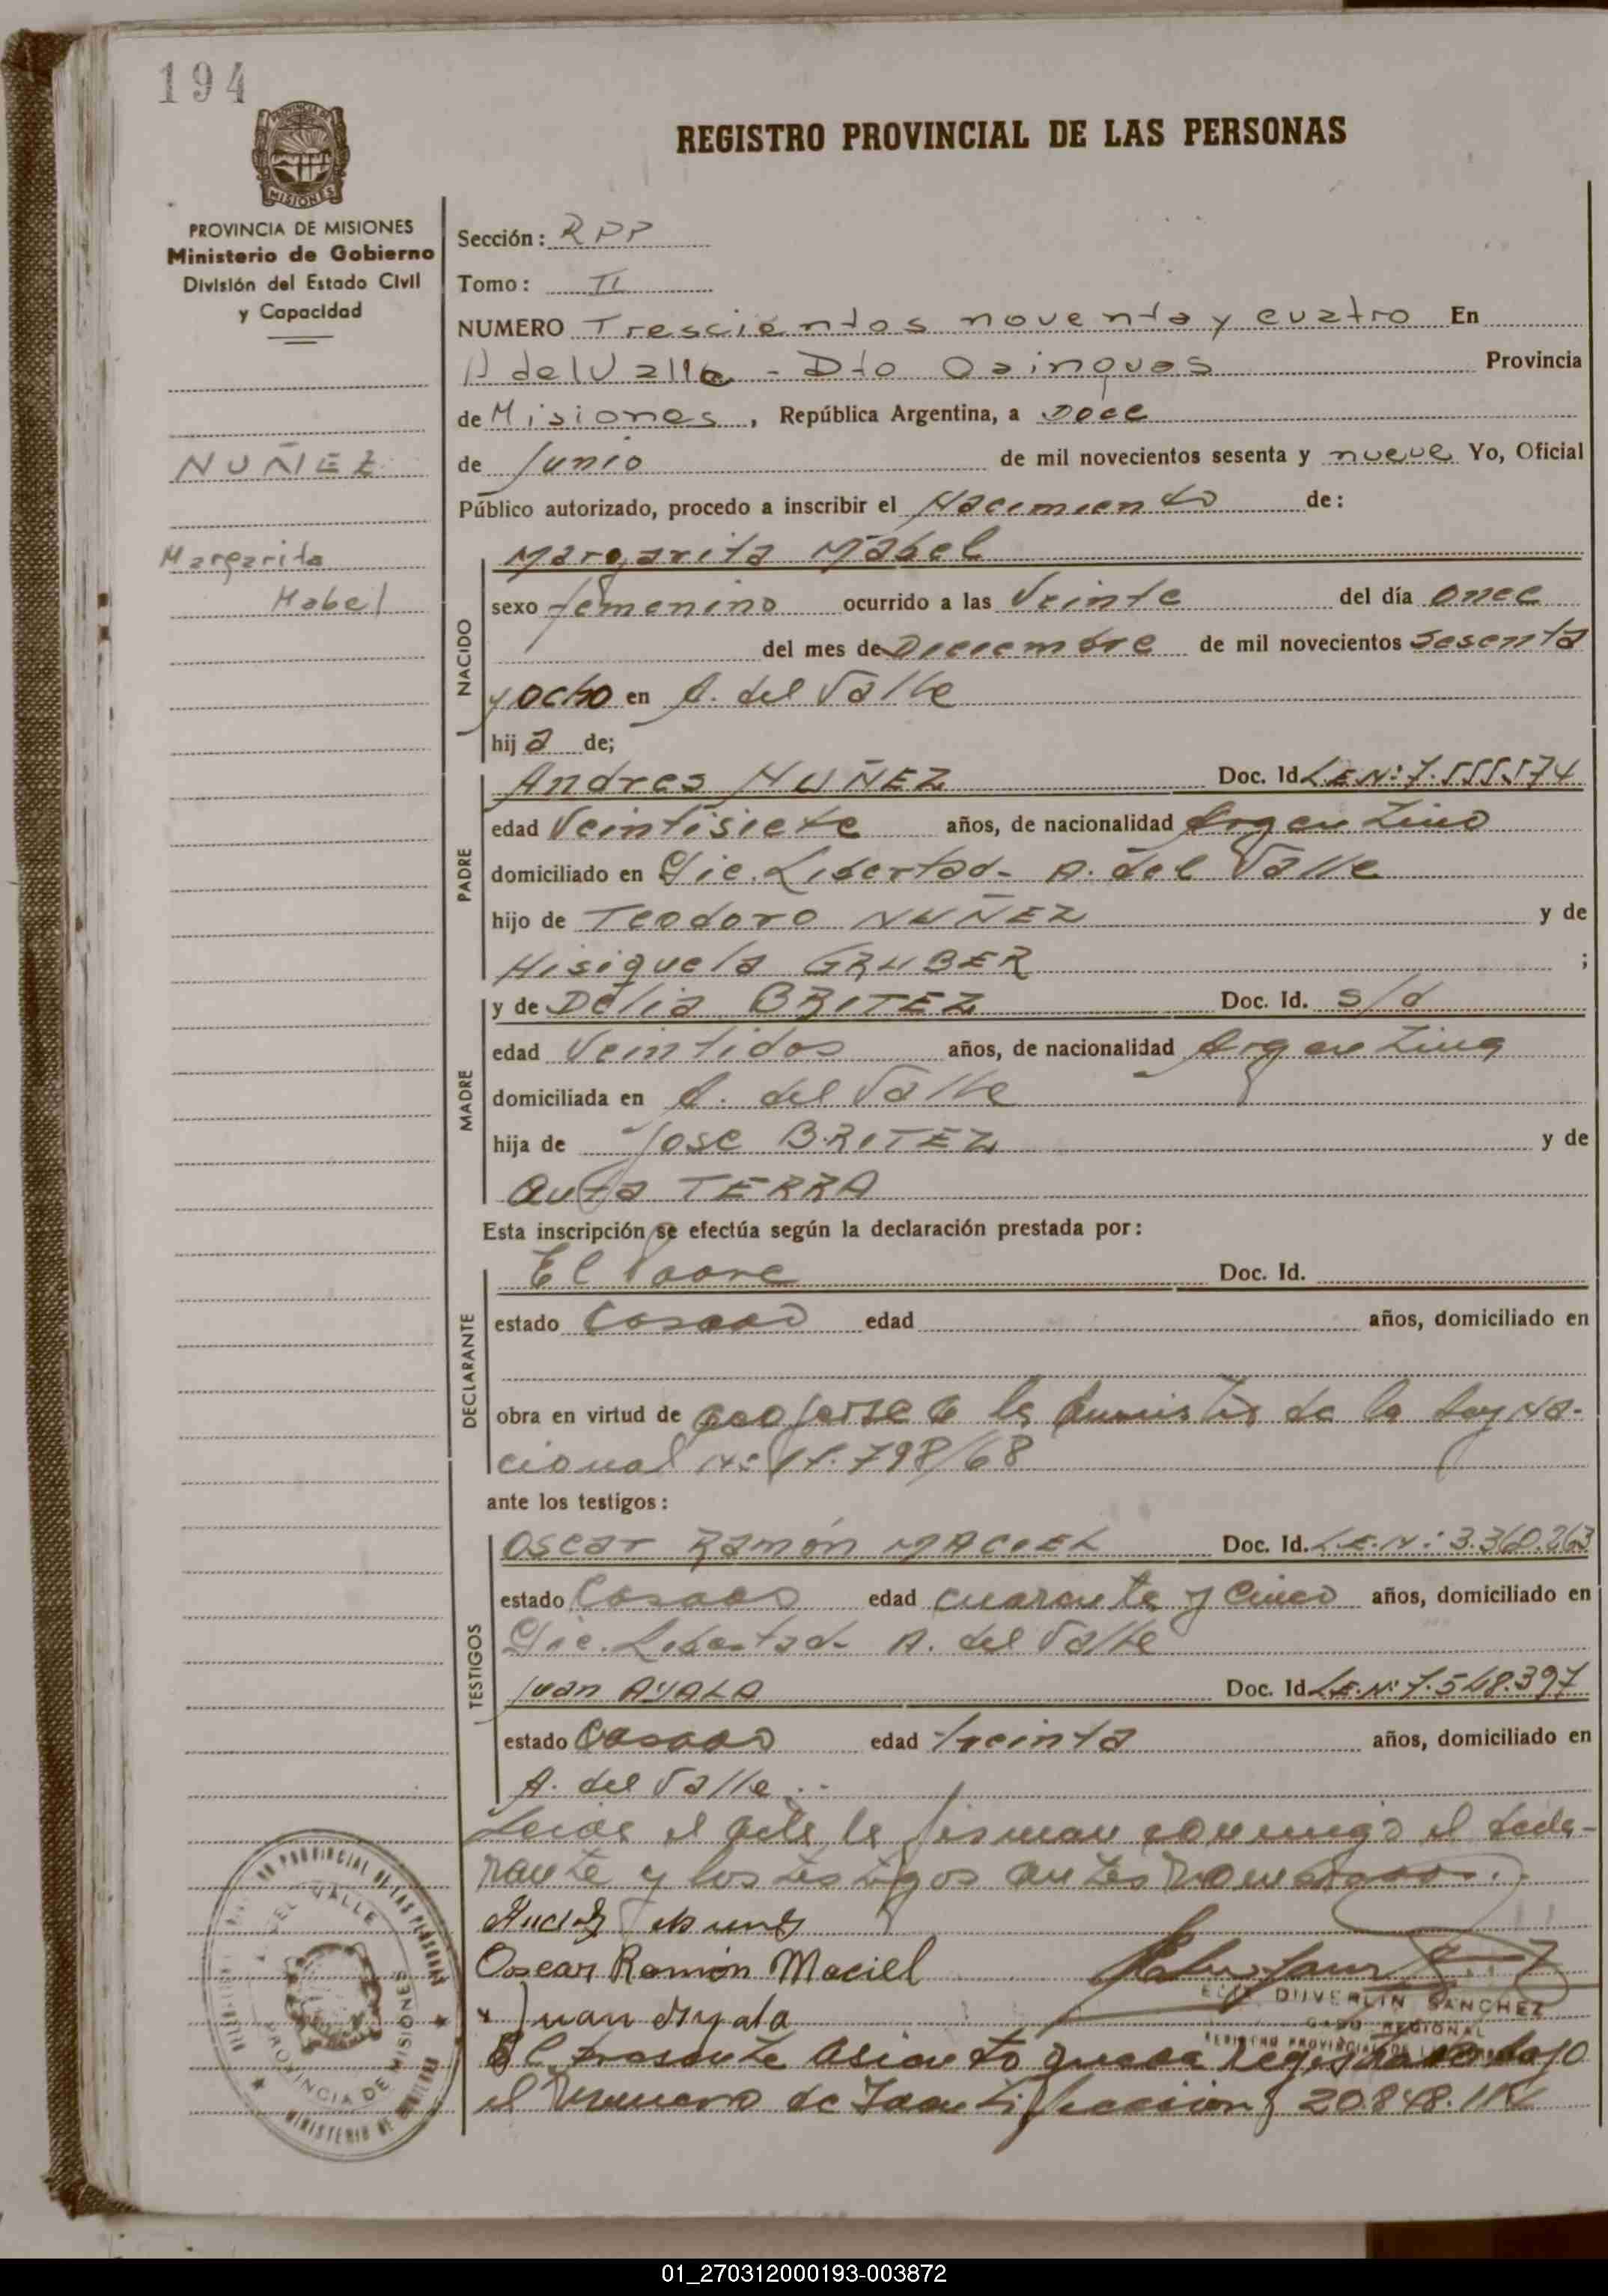 194
REGISTRO PROVINCIAL DE LAS PERSONAS
PROVINCIA DE MISIONES
Ministerio de Gobierno
División del Estado Civil
y Capacidad
NUÑEZ
Margarita
Mabel
Sección: RPP
Tomo: II
NUMERO Trescientos noventa y cuatro En
A del Valle - Dto Cainguas Provincia
de Misiones, República Argentina, a Doce
de Junio de mil novecientos sesenta y nueve Yo, Oficial
Público autorizado, procedo a inscribir el Nacimiento de:
NACIDO
Margarita Mabel
sexo femenino ocurrido a las Veinte del día once
del mes de Diciembre de mil novecientos sesenta
y ocho en A. del Valle
hija de;
PADRE
Andres NUÑEZ Doc. Id L.E.Nº: 7.555.574
edad Veintisiete años, de nacionalidad Argentino
domiciliado en Pic. Libertad - A. del Valle
hijo de Teodoro NUÑEZ y de
Hisiquela GRUBER ;
MADRE
y de Delia BRITEZ Doc. Id. s/d
edad Veintidos años, de nacionalidad Argentina
domiciliada en A. del Valle
hija de Jose BRITEZ y de
TERRA
Esta inscripción se efectúa según la declaración prestada por:
DECLARANTE
El Padre Doc. Id.
estado Casado edad años, domiciliado en
obra en virtud de acojerse a la Amnistia de la Ley Na-
cional Nº 17.798/68
ante los testigos:
TESTIGOS
Oscar Ramón MACIEL Doc. Id. L.E.Nº: 3.360.263
estado Casado edad cuarenta y cinco años, domiciliado en
Pic. Libertad - A. del Valle
Juan AYALA Doc. Id L.E.Nº: 7.548.397
estado Casado edad treinta años, domiciliado en
A. del Valle
Leida el acta la firman conmigo el decla-
rante y los testigos antes nombrados.
Oscar Ramón Maciel
Juan Ayala
DUVERLIN SANCHEZ
REGIONAL
El presente asiento queda registrado bajo
el numero de Identificacion
A. DEL VALLE
PROVINCIA DE MISIONES
01_270312000193-003872